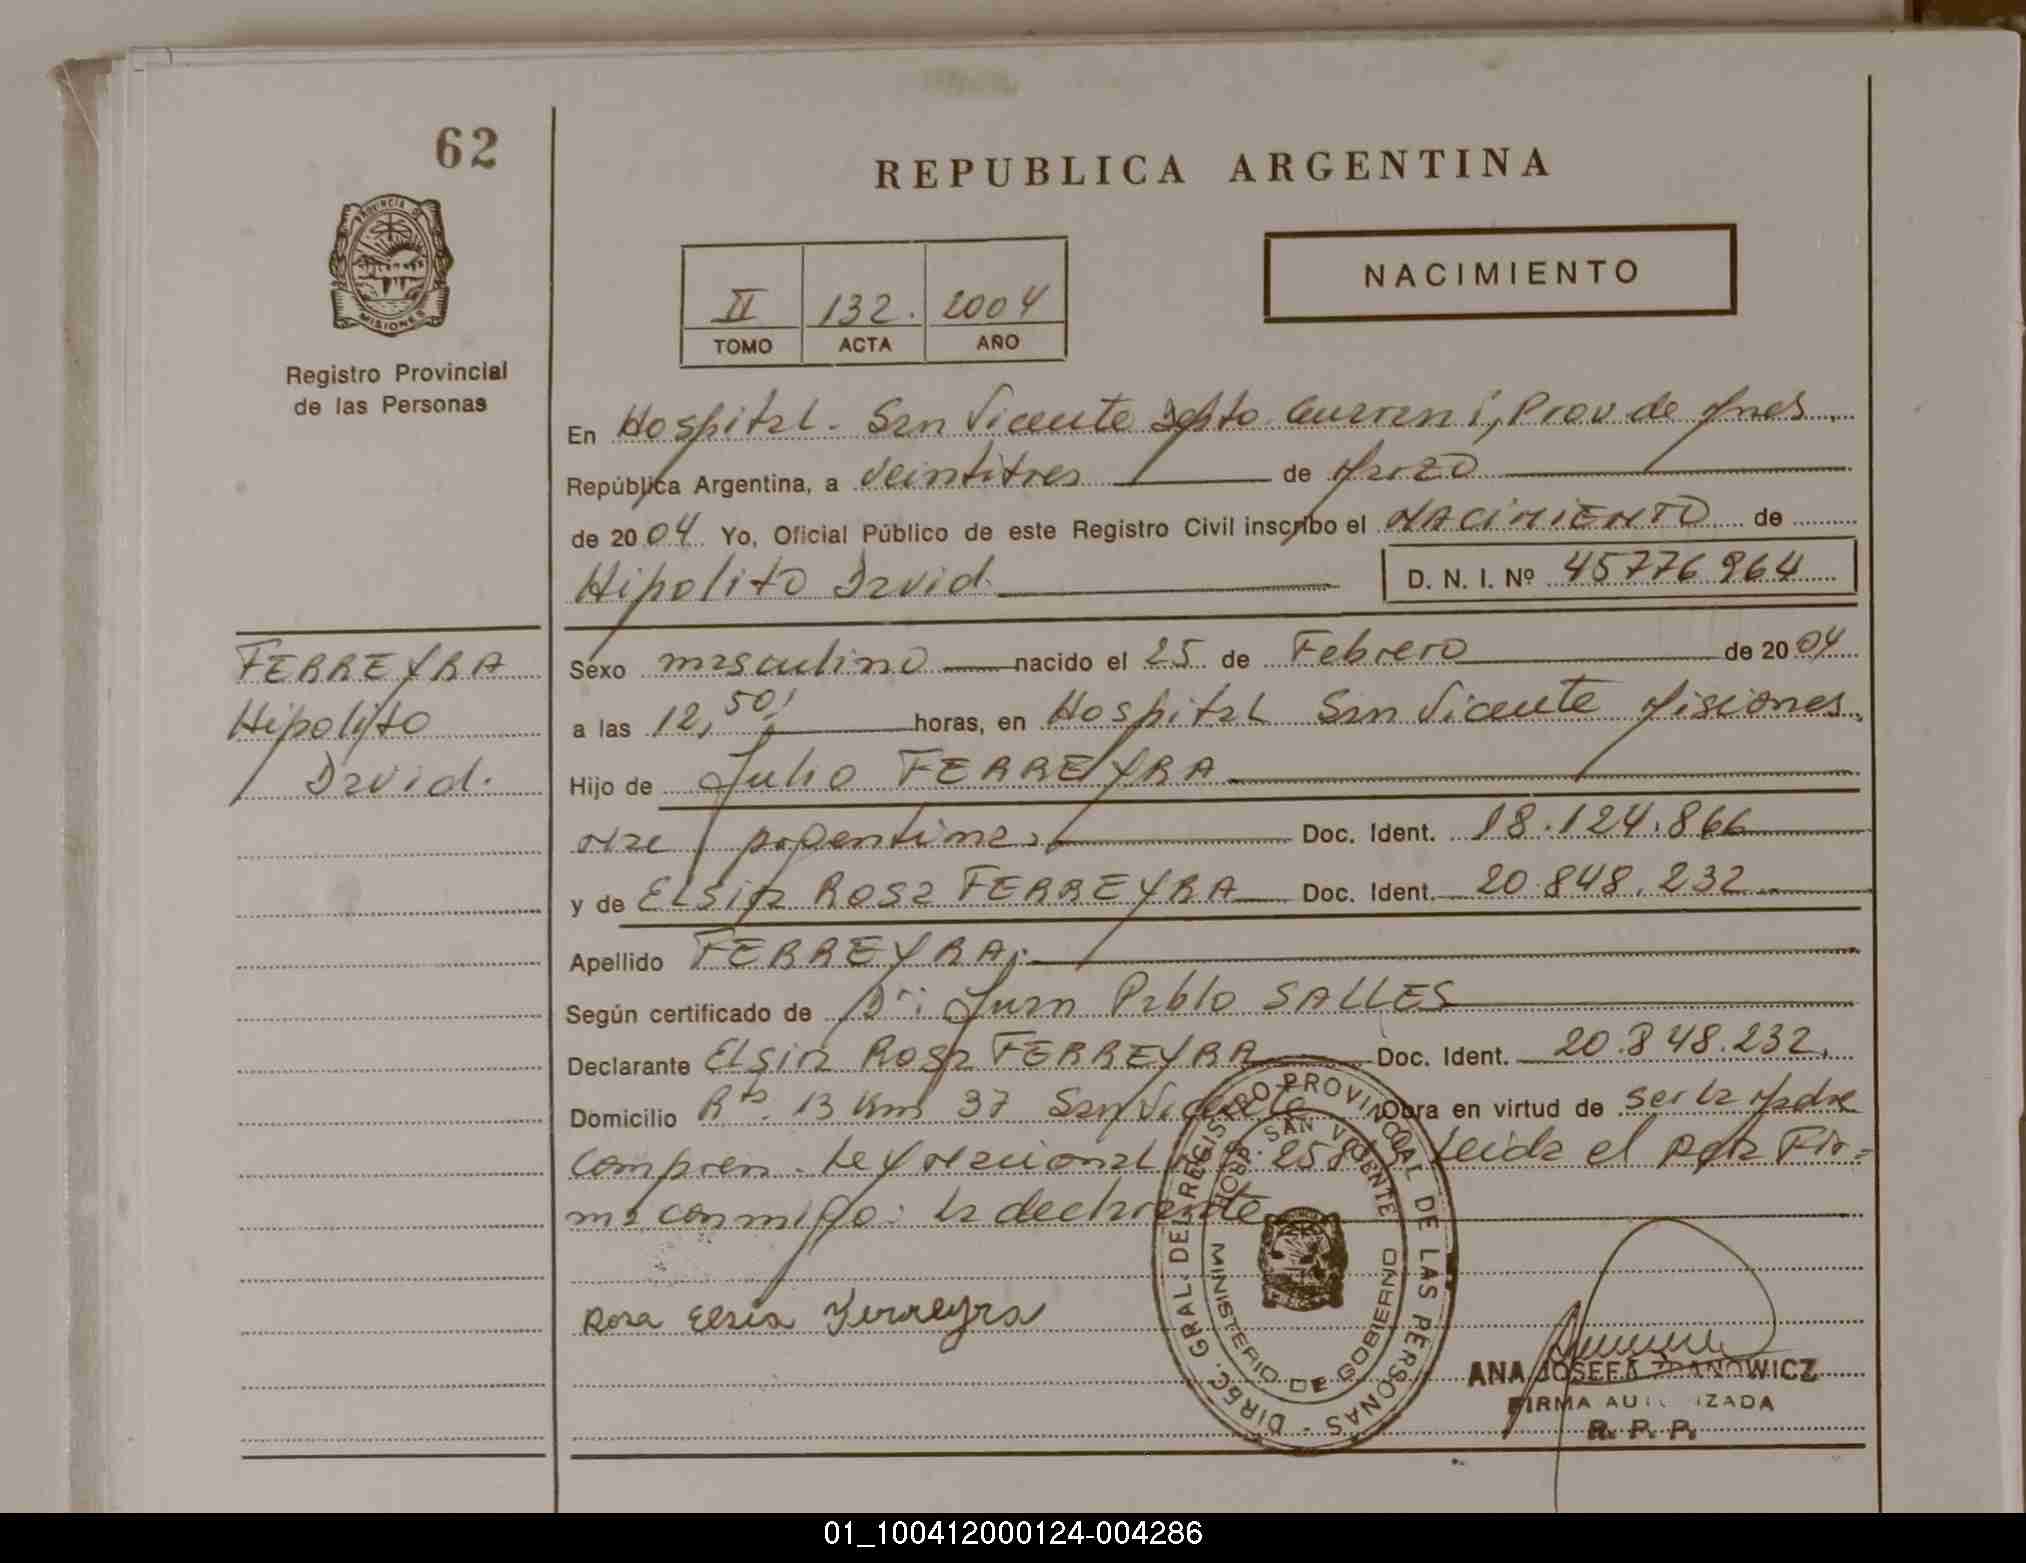 62
REPUBLICA ARGENTINA
PROVINCIA DE
MISIONES
Registro Provincial
de las Personas
NACIMIENTO
II 132. 2004
TOMO ACTA AÑO
En Hospital. San Vicente Dpto. Guarani, Prov de Mnes
República Argentina, a veintitres de Marzo
de 2004 Yo, Oficial Público de este Registro Civil inscribo el NACIMIENTO de
Hipolito David. D. N. I. Nº 45776964
FERREYRA
Hipolito
David.
Sexo masculino nacido el 25 de Febrero de 2004
a las 12,50' horas, en Hospital San Vicente Misiones.
Hijo de Julio FERREYRA
Doc. Ident. 18.124.866
y de ELSIA Rosa FERREYRA Doc. Ident. 20.848.232
Apellido FERREYRA.
Según certificado de Dr: Juan Pablo SALLES
Declarante ELSIA Rosa FERREYRA Doc. Ident. 20.848.232.
Domicilio Rta. 13 Km 37 San Vicente Obra en virtud de ser la Madre
Compren. Ley Nacional Leida el Acta Fir=
ma conmigo: la declarante
Rosa Elsia Ferreyra
DIREC. GRAL. DEL REGISTRO PROVINCIAL DE LAS PERSONAS
SAN VICENTE
MINISTERIO DE GOBIERNO
ANA JOSEFA ZDANOWICZ
FIRMA AUTORIZADA
R. P. P.
01_100412000124-004286